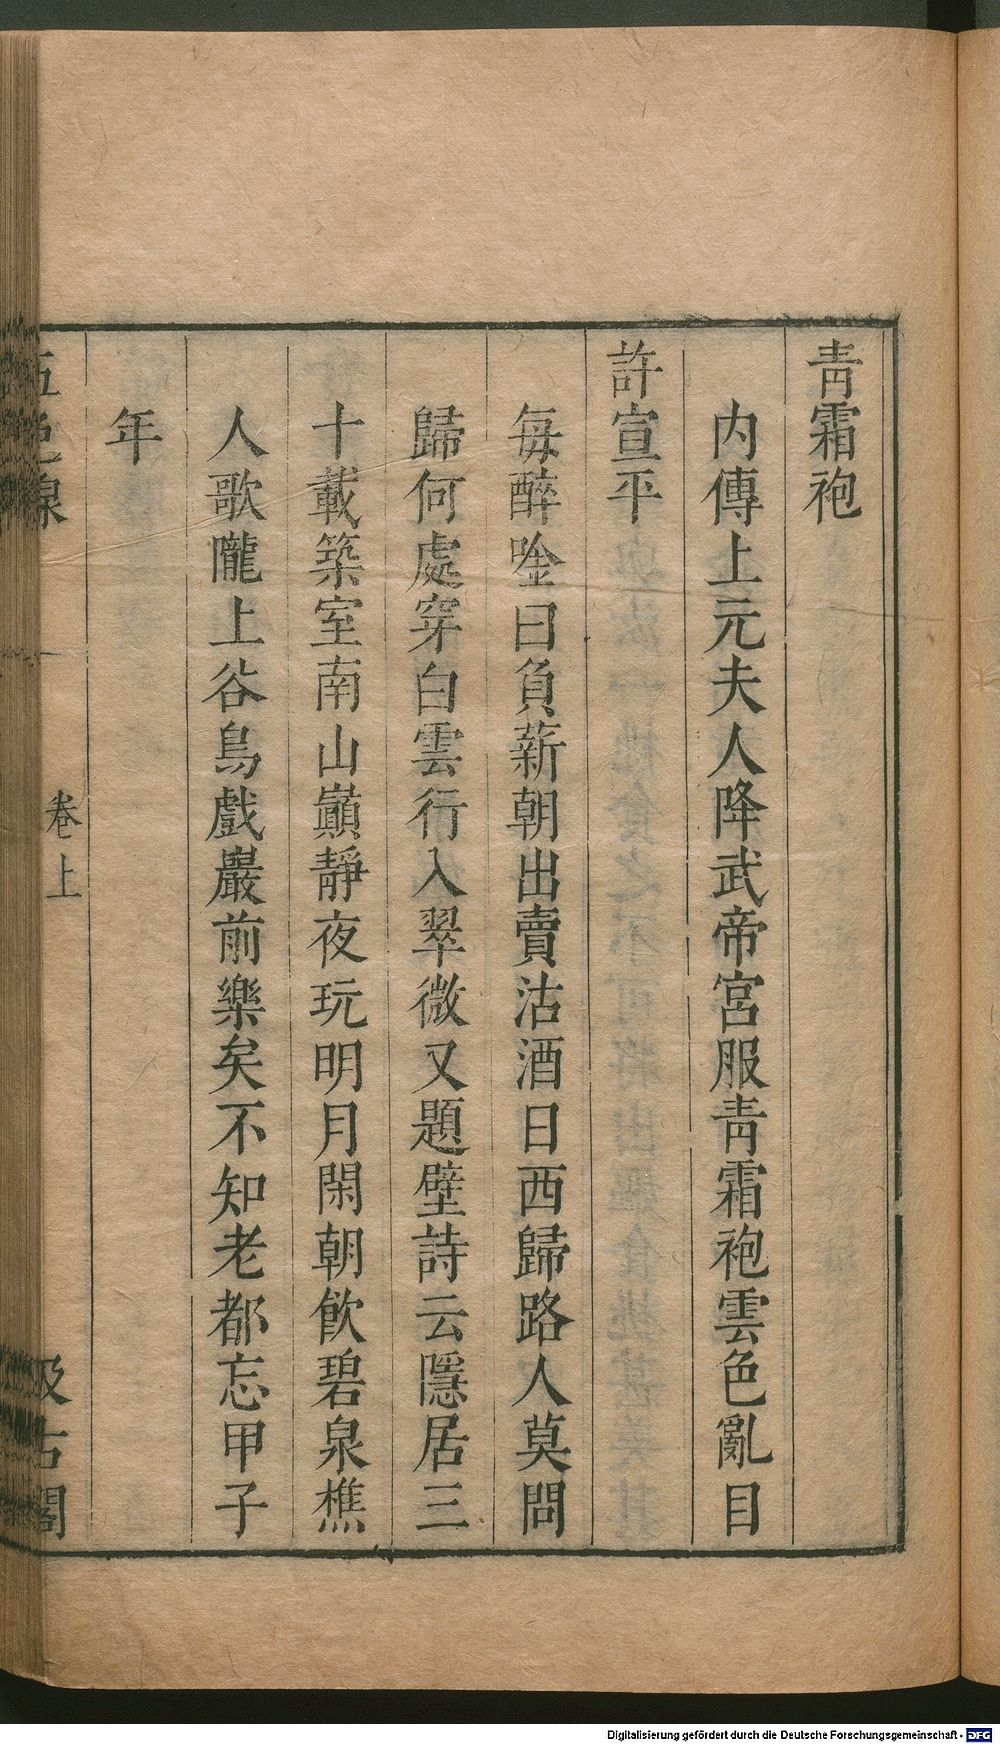 青霜袍
内傳上元夫人降武帝宮服青霜袍雲色亂目
許宣平
每醉唫曰負薪朝出賣沽酒日西歸路人莫問
歸何處穿白雲行入翠微又題壁詩云隱居三
十載築室南山巓靜夜玩明月閑朝飲碧泉樵
人歌隴上谷鳥戲巖前樂矣不知老都忘甲子
年
五色線 卷上 汲古閣
Digitalisierung gefördert durch die Deutsche Forschungsgemeinschaft - DFG